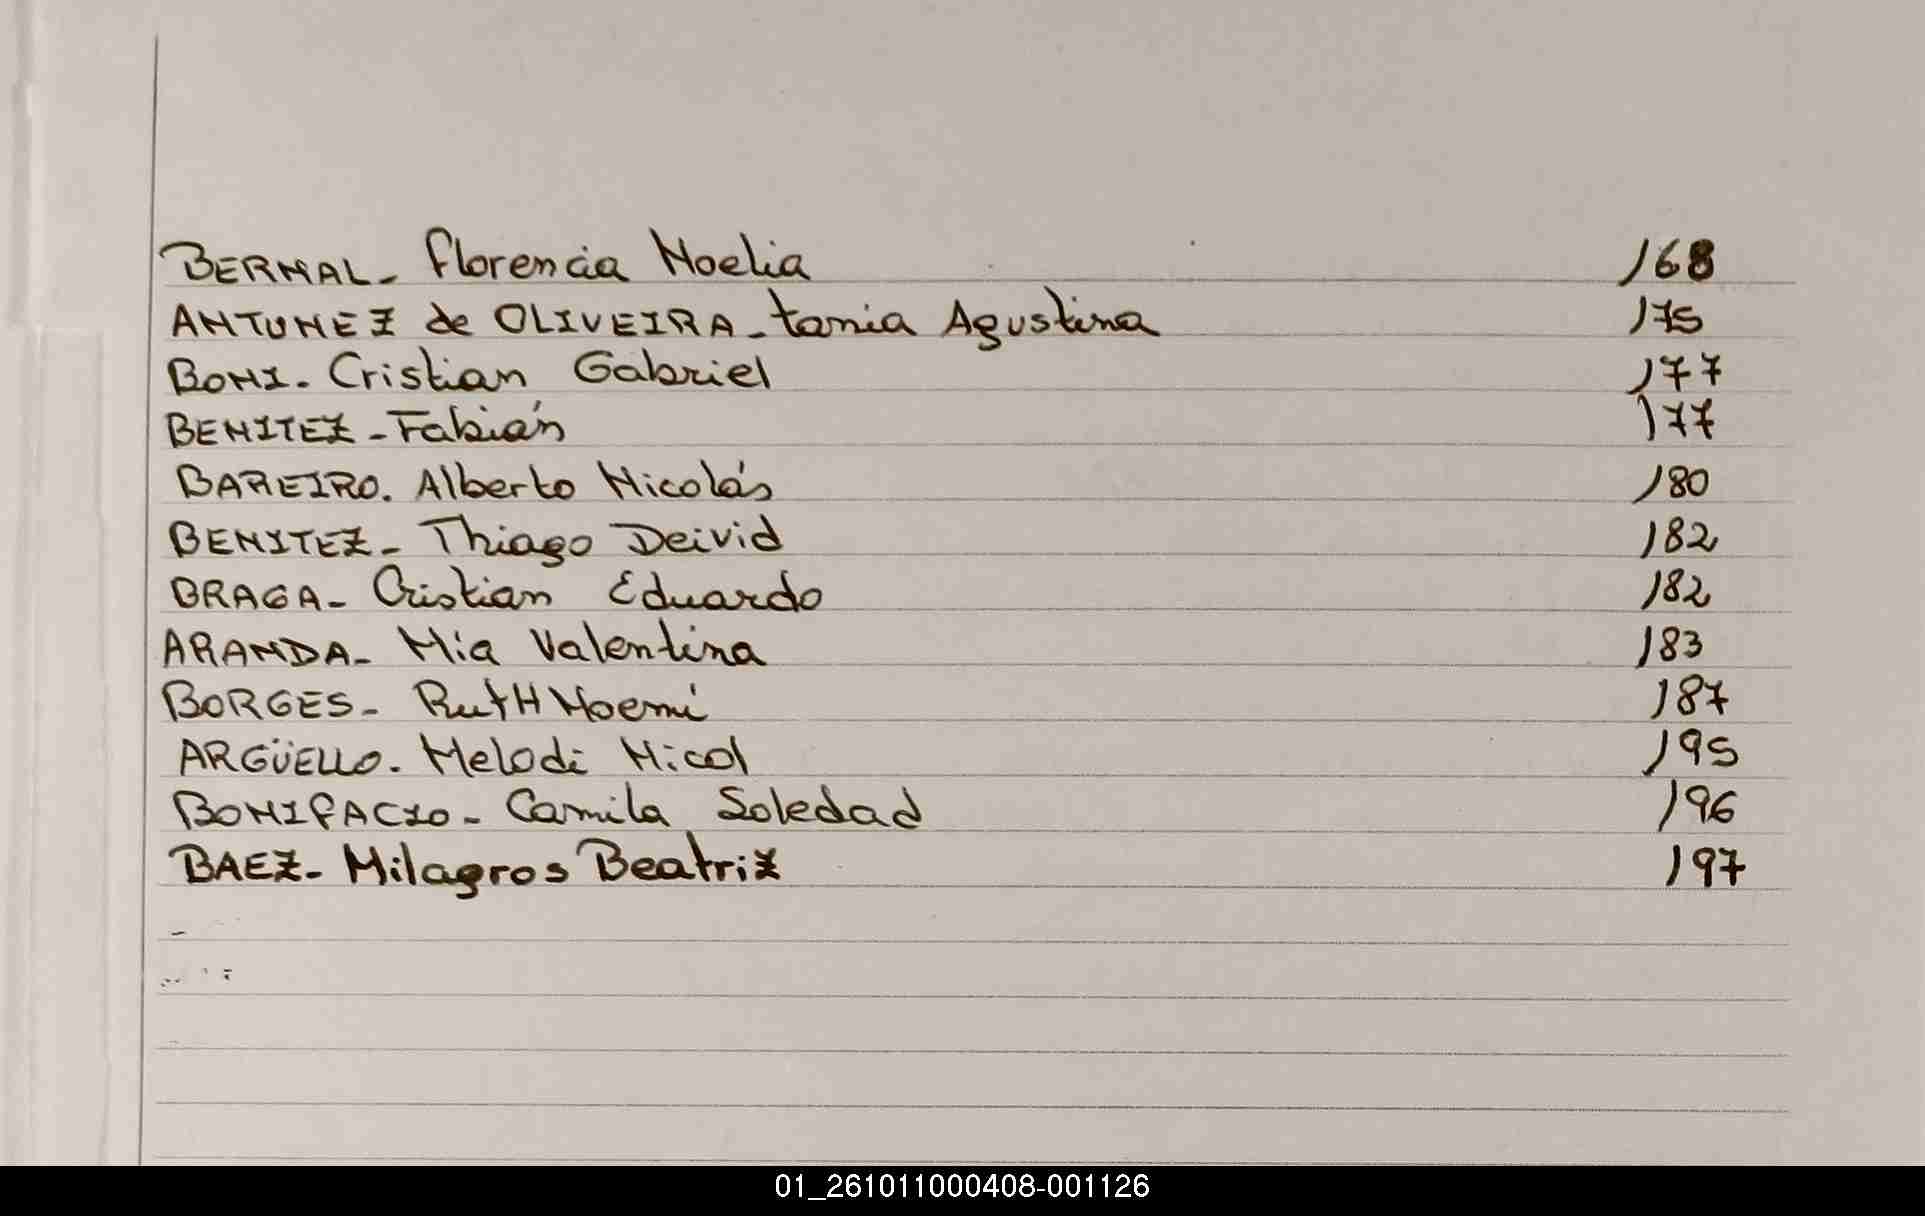 BERNAL - Florencia Noelia 168
ANTUNEZ de OLIVEIRA - tania Agustina 175
BONI - Cristian Gabriel 177
BENITEZ - Fabián 177
BAREIRO. Alberto Nicolás 180
BENITEZ - Thiago Deivid 182
BRAGA - Cristian Eduardo 182
ARANDA - Mia Valentina 183
BORGES - RutH Noemí 187
ARGÜELLO - Melodi Nicol 195
BONIFACIO - Camila Soledad 196
BAEZ - Milagros Beatriz 197
01_261011000408-001126